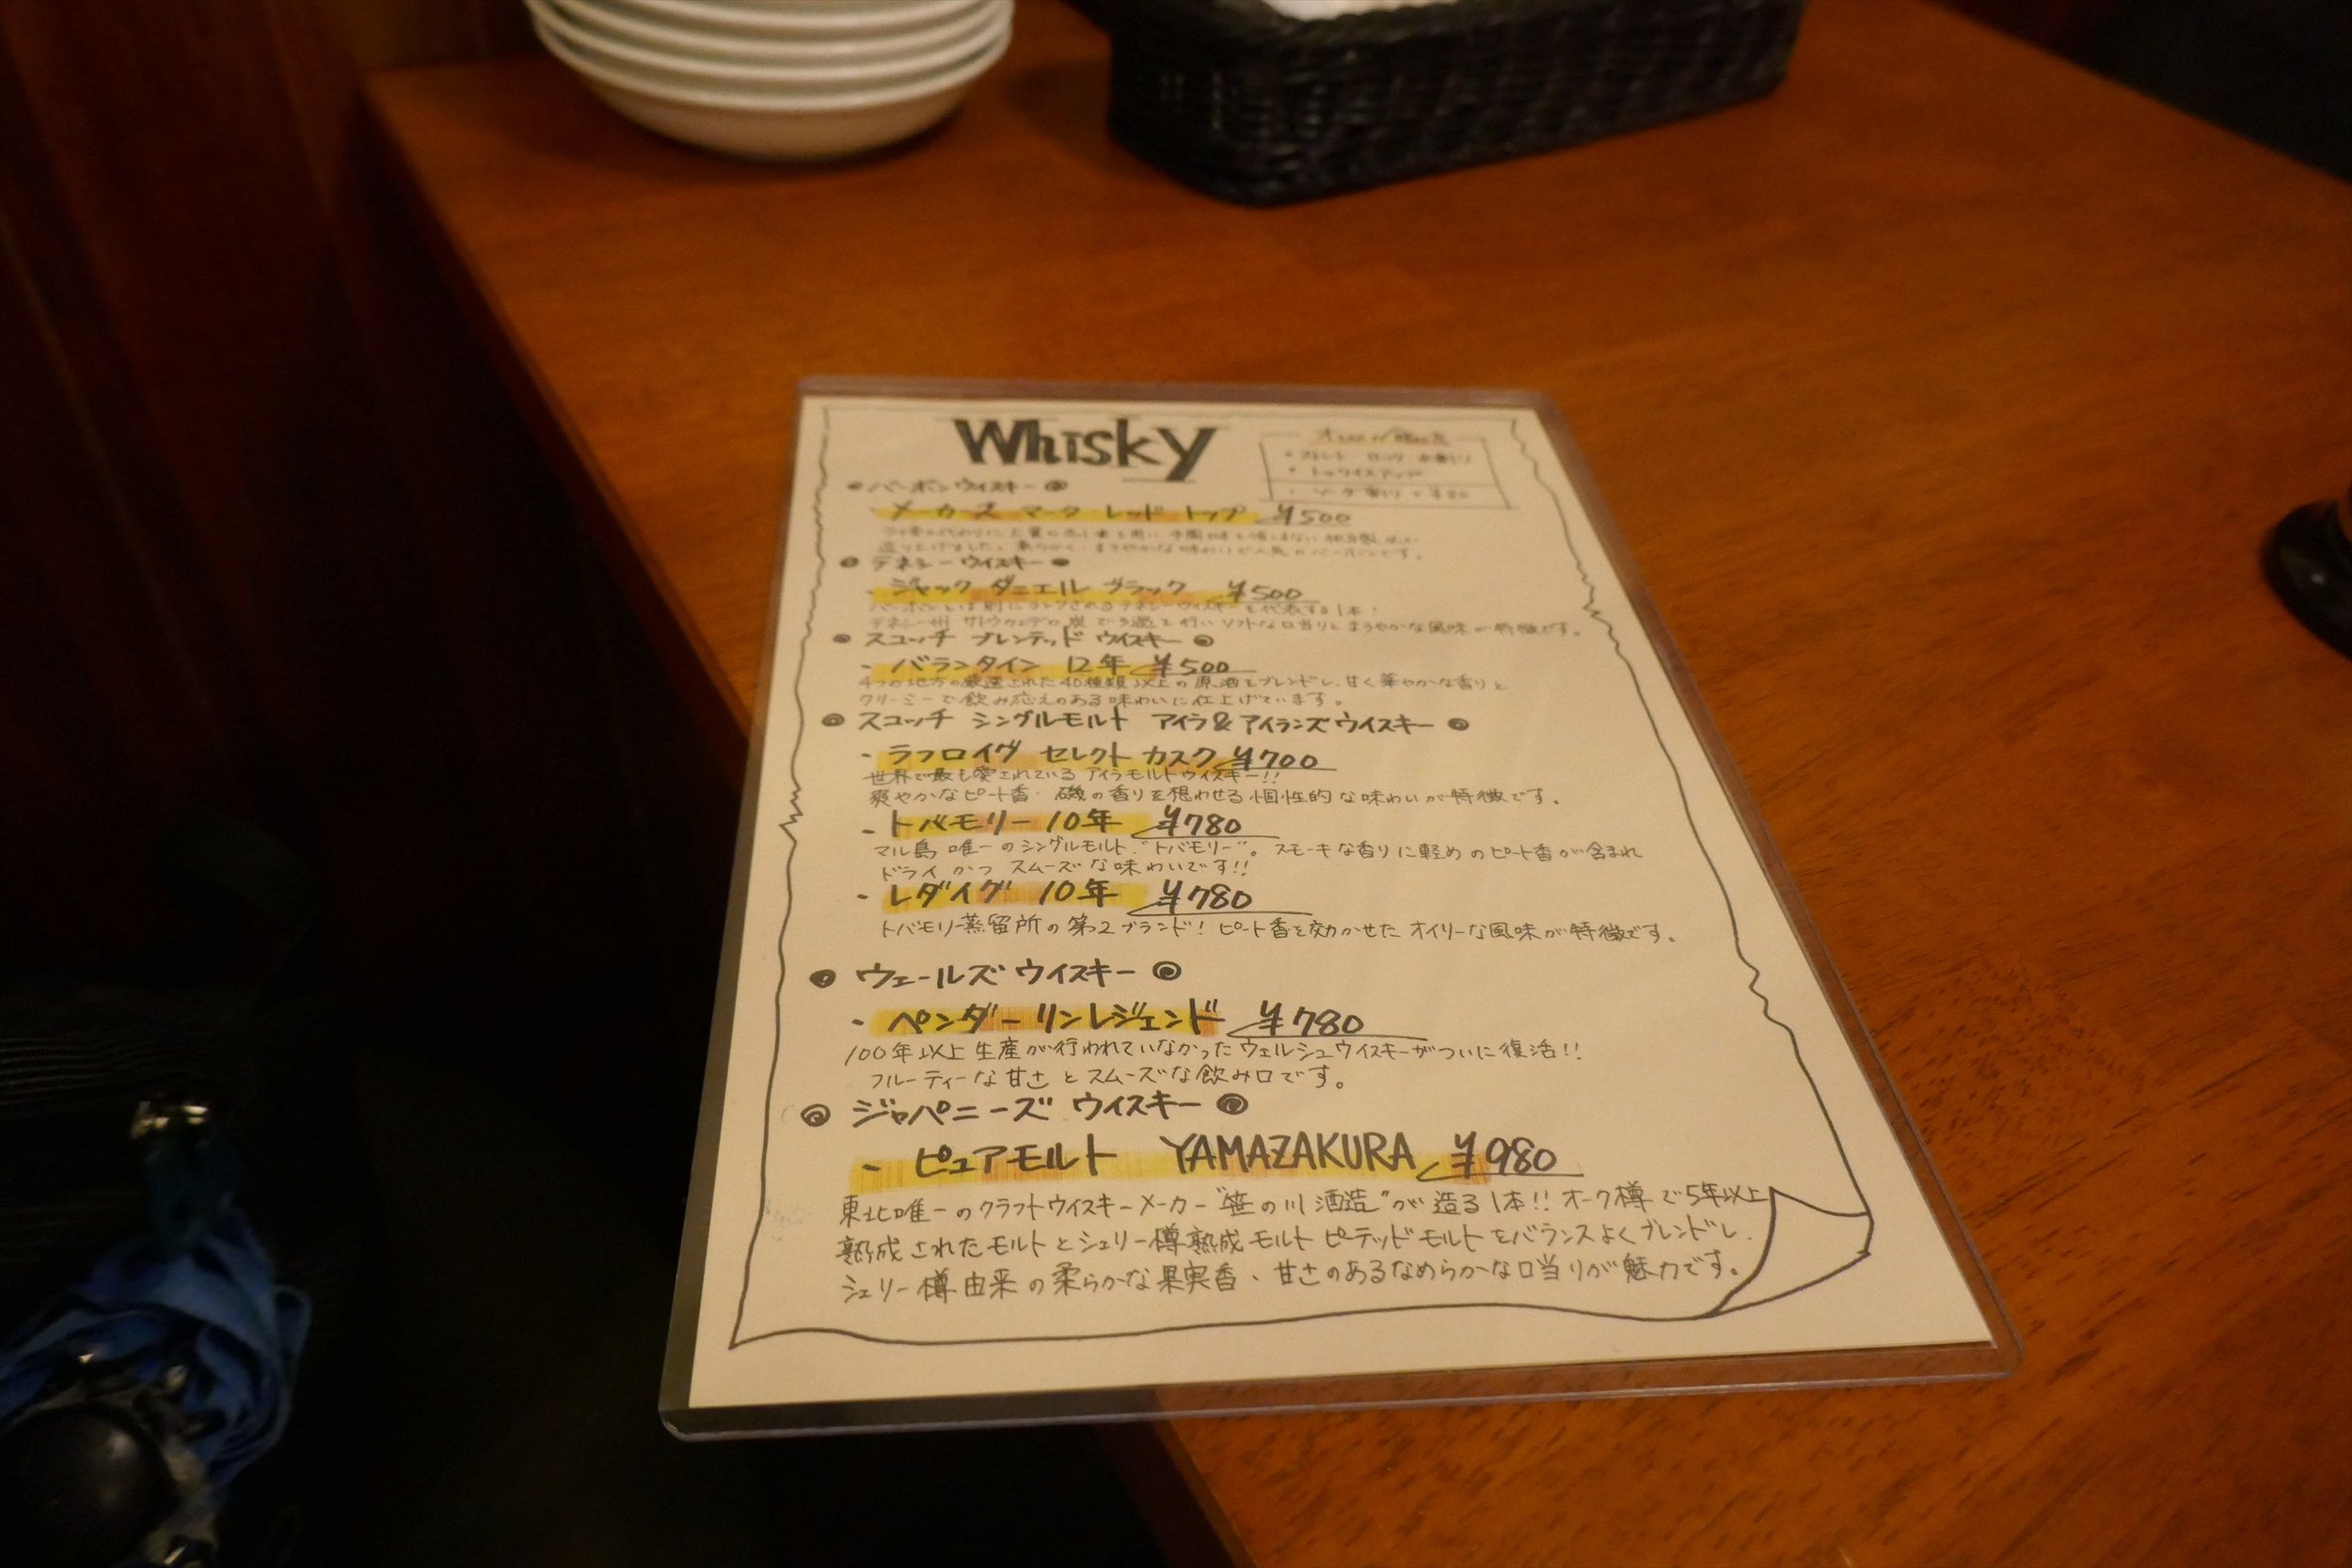 Whisky
・ストレート・ロック・水割り
・トゥワイスアップ
・ソーダ割り + ¥80
バーボンウイスキー
・メーカーズ マーク レッド トップ ¥500
造り上げました。柔らかく、まろやかな味わいで人気のバーボンです。
テネシーウイスキー
・ジャック ダニエル ブラック ¥500
バーボンとは別にランクされるテネシーウイスキーを代表する1本!
テネシー州 サトウカエデの炭でろ過を行い ソフトな口当りとまろやかな風味が特徴です。
スコッチ ブレンテッド ウイスキー
・バランタイン 12年 ¥500
4つの地方の厳選された40種類以上の原酒をブレンドし、甘く華やかな香りと
クリーミーで飲み応えのある味わいに仕上げています。
スコッチ シングルモルト アイラ&アイランズウイスキー
・ラフロイグ セレクト カスク ¥700
世界で最も愛されている アイラモルトウイスキー!!
爽やかなピート香・磯の香りを想わせる個性的な味わいが特徴です。
・トバモリー 10年 ¥780
マル島 唯一のシングルモルト "トバモリー"。スモーキな香りに軽めのピート香が含まれ
ドライ かつ スムーズな味わいです!!
・レダイグ 10年 ¥780
トバモリー蒸留所の第2ブランド! ピート香を効かせた オイリーな風味が特徴です。
ウェールズ ウイスキー
・ペンダーリンレジェンド ¥780
100年以上生産が行われていなかったウェルシュウイスキーがついに復活!!
フルーティーな甘さとスムーズな飲み口です。
ジャパニーズ ウイスキー
・ピュアモルト YAMAZAKURA ¥980
東北唯一のクラフトウイスキーメーカー"笹の川酒造"が造る1本!! オーク樽で5年以上
熟成されたモルトとシェリー樽熟成モルト ピーテッドモルトをバランスよくブレンドし、
シェリー樽由来の柔らかな果実香・甘さのあるなめらかな口当りが魅力です。